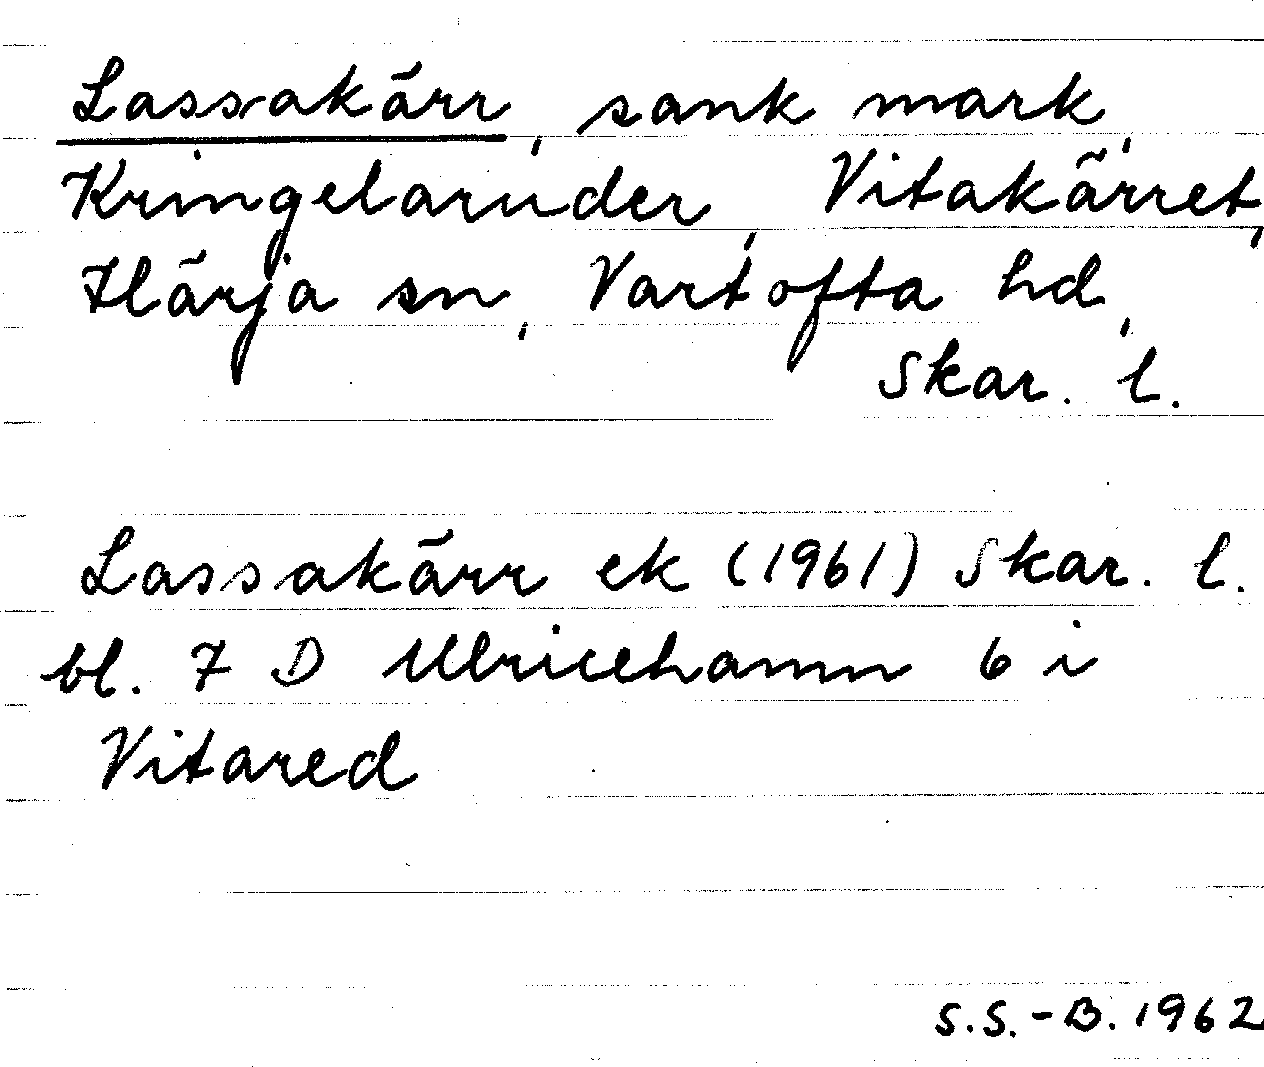 Lassakärr, sank mark,
Kringelaruder, Vitakärret,
Härja sn, Vartofta hd,
Skar. l.
Lassakärr ek (1961) Skar. l.
bl. 7 D Ulricehamn 6 i
Vitared
S.S.-B. 1962